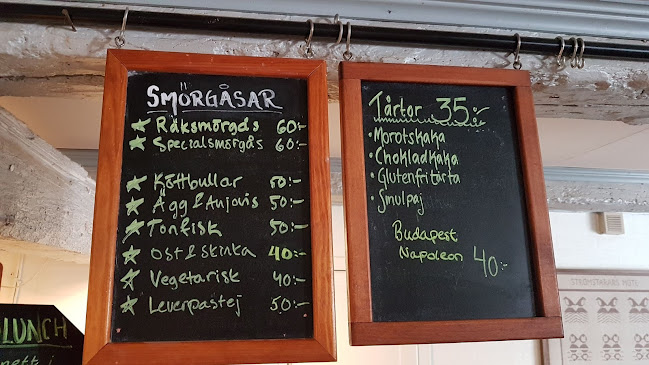 SMÖRGÅSAR
Räksmörgås 60:-
Specialsmörgås 60:-
Köttbullar 50:-
Ägg & Anjovis 50:-
Tonfisk 50:-
Ost & skinka 40:-
Vegetarisk 40:-
Leverpastej 50:-
Tårtor 35:-
• Morotskaka
• Chokladkaka
• Glutenfritårta
• Smulpaj
Budapest
Napoleon 40:-
LUNCH